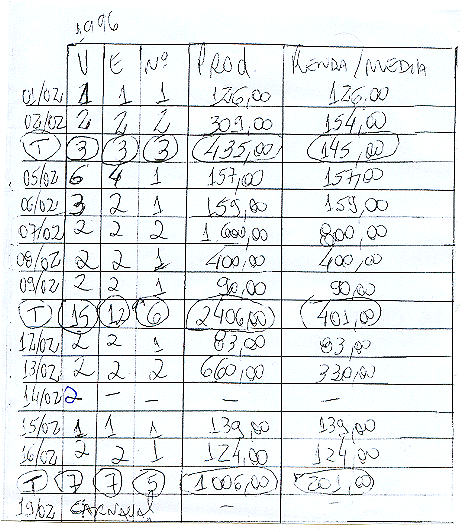 1996
V E Nº PROD. RENDA/MEDIA
01/02 1 1 1 126,00 126,00
02/02 2 2 2 309,00 154,00
T 3 3 3 435,00 145,00
05/02 6 4 1 157,00 157,00
06/02 3 2 1 159,00 159,00
07/02 2 2 2 1600,00 800,00
08/02 2 2 1 400,00 400,00
09/02 2 2 1 90,00 90,00
T 15 12 6 2406,00 401,00
12/02 2 2 1 83,00 83,00
13/02 2 2 2 660,00 330,00
14/02 2 - - - -
15/02 1 1 1 139,00 139,00
16/02 2 2 1 124,00 124,00
T 7 7 5 1006,00 201,00
19/02 CARNAVAL - -